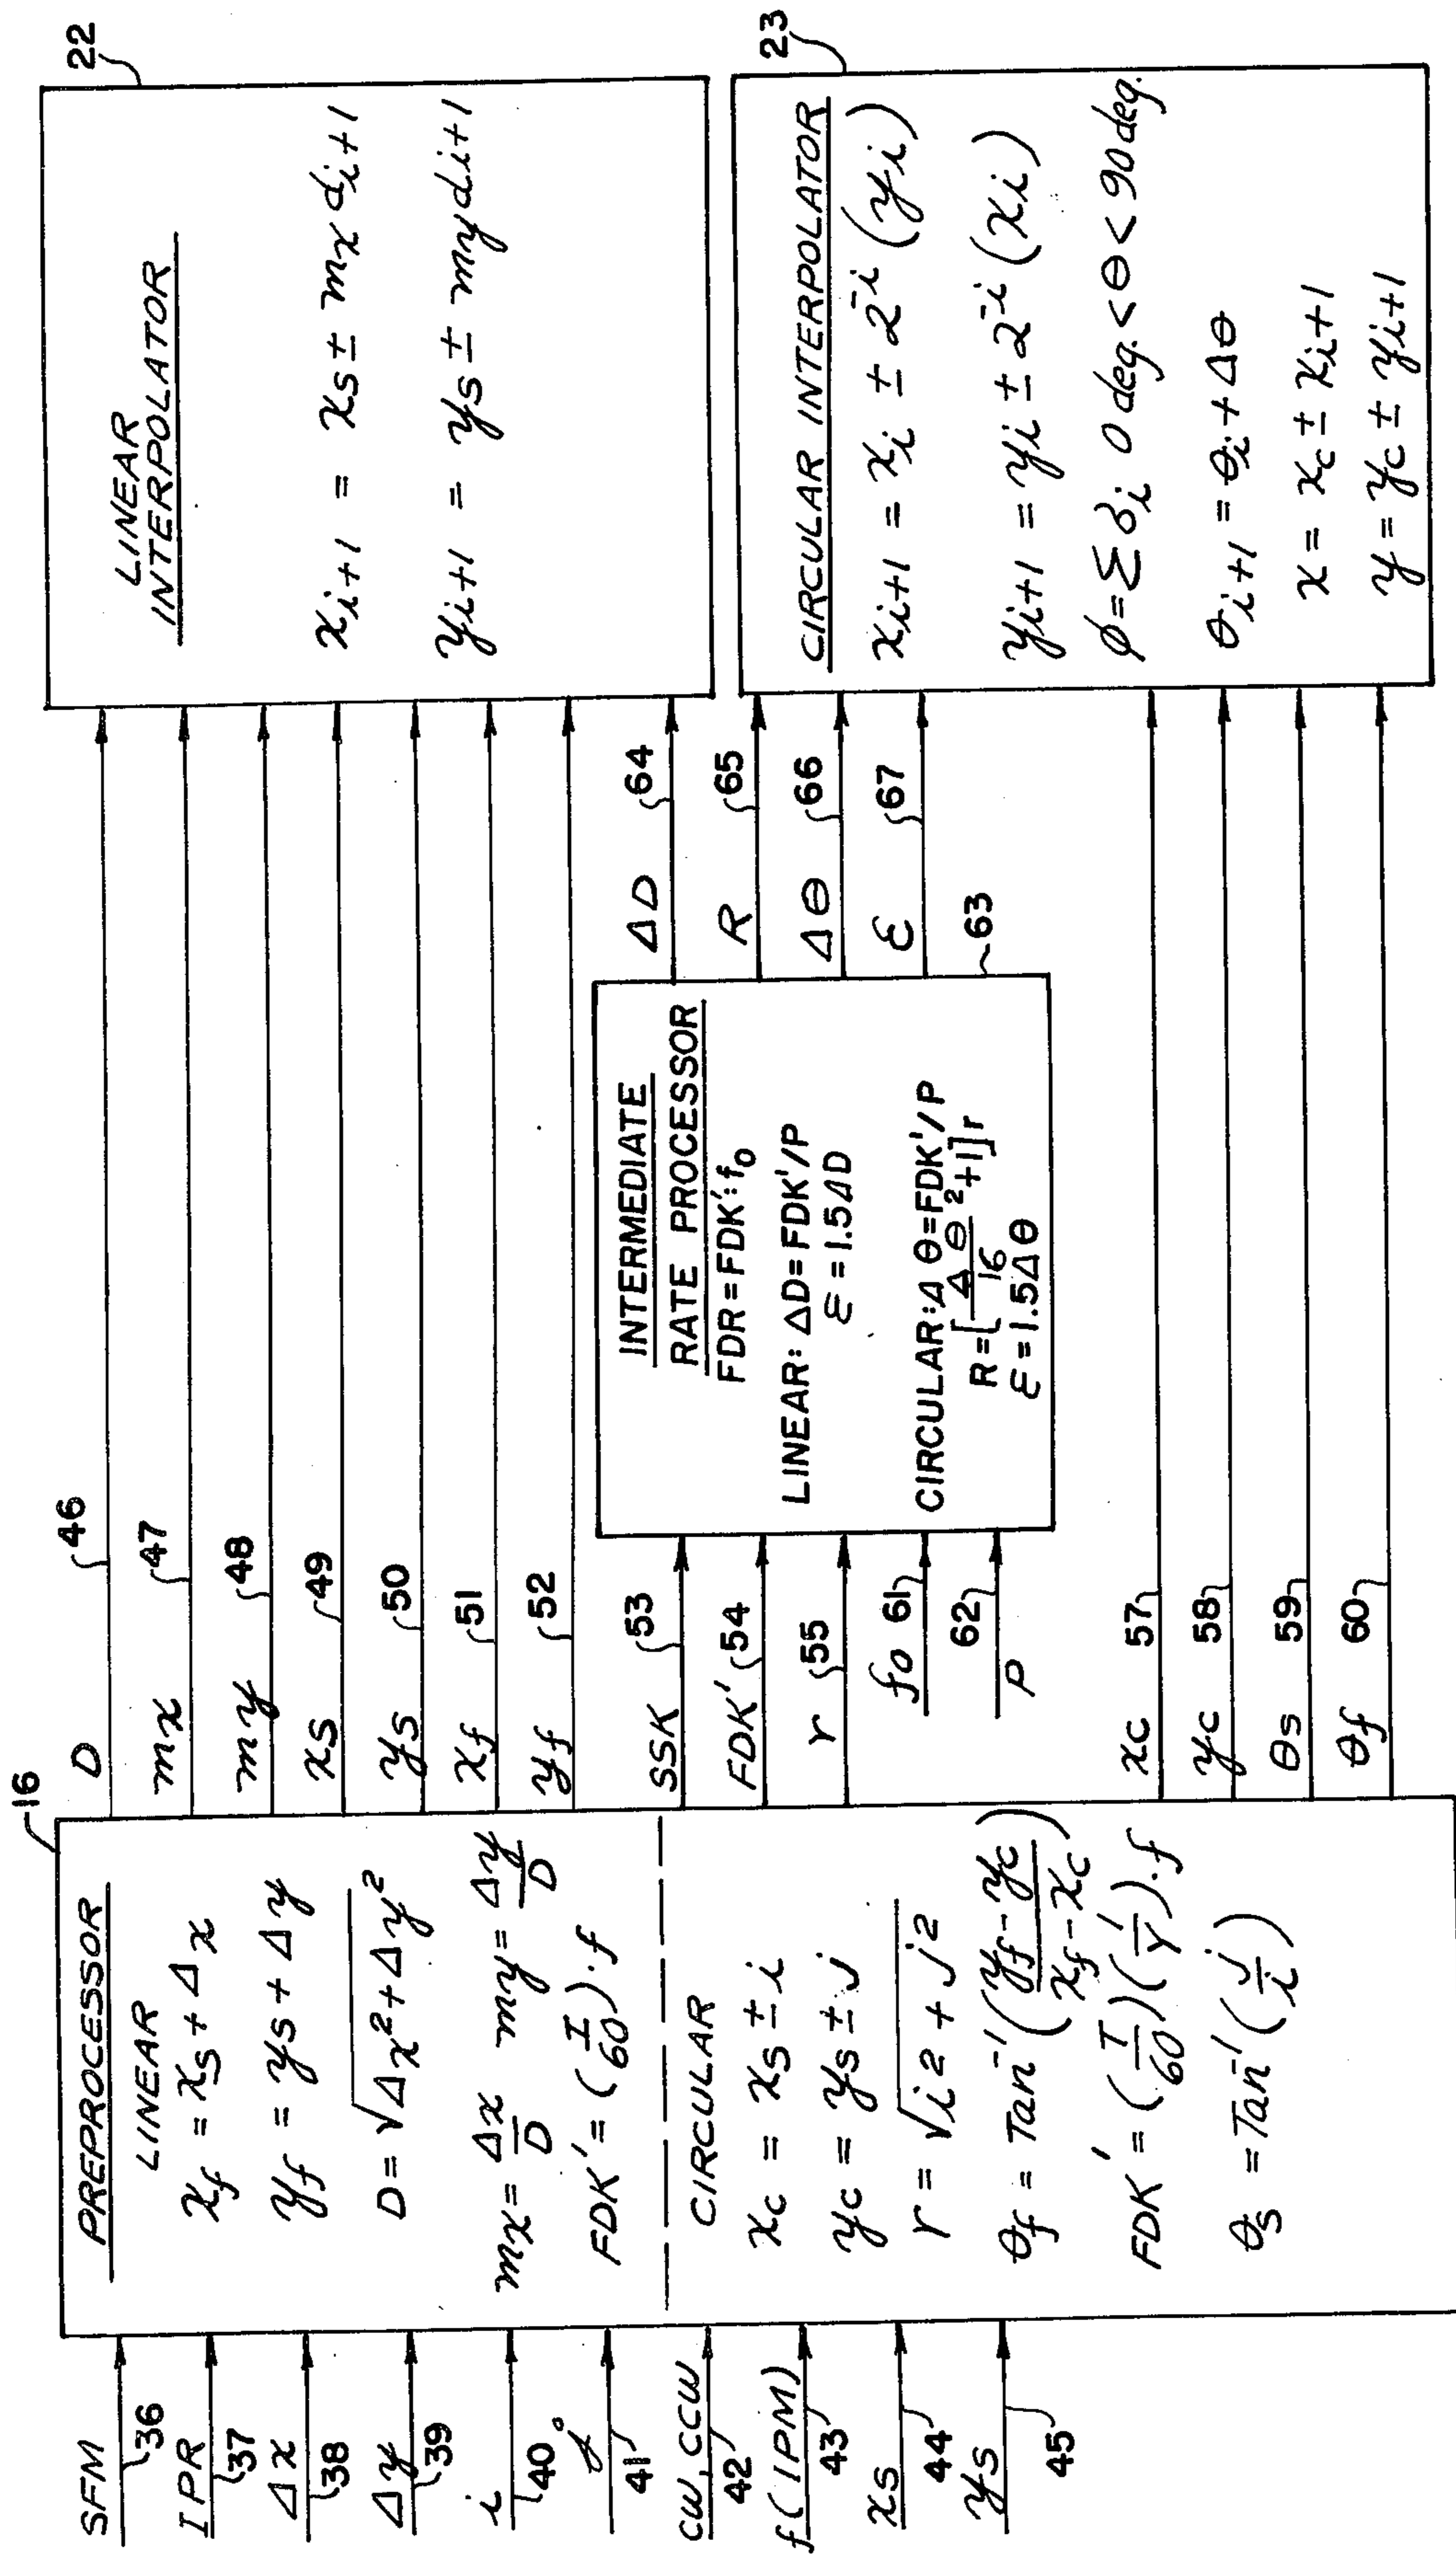 SFM
36
IPR
37
Δx
38
Δy
39
i
40
j
41
CW, CCW
42
f(IPM)
43
xs
44
ys
45
16
PREPROCESSOR
LINEAR
xf = xs + Δx
yf = ys + Δy
D = √Δx² + Δy²
mx = Δx/D my = Δy/D
FDK' = (T/60)·f
CIRCULAR
xc = xs ± i
yc = ys ± j
r = √i² + j²
θf = Tan⁻¹(yf - yc/xf - xc)
FDK' = (T/60)(1/r)·f
θs = Tan⁻¹(j/i)
D
46
mx
47
my
48
xs
49
ys
50
xf
51
yf
52
SSK
53
FDK'
54
r
55
fo
61
62
P
xc
57
yc
58
θs
59
θf
60
INTERMEDIATE
RATE PROCESSOR
FDR=FDK':fo
LINEAR: ΔD=FDK'/P
ε=1.5ΔD
CIRCULAR: Δθ=FDK'/P
R=[Δθ²/16+1]r
ε=1.5Δθ
63
ΔD
64
R
65
Δθ
66
ε
67
22
LINEAR
INTERPOLATOR
xi+1 = xs ± mx di+1
yi+1 = ys ± my di+1
23
CIRCULAR INTERPOLATOR
xi+1 = xi ± 2⁻ⁱ (yi)
yi+1 = yi ± 2⁻ⁱ (xi)
ϕ=Σδi 0 deg.<θ<90 deg.
θi+1 = θi + Δθ
x = xc ± xi+1
y = yc ± yi+1